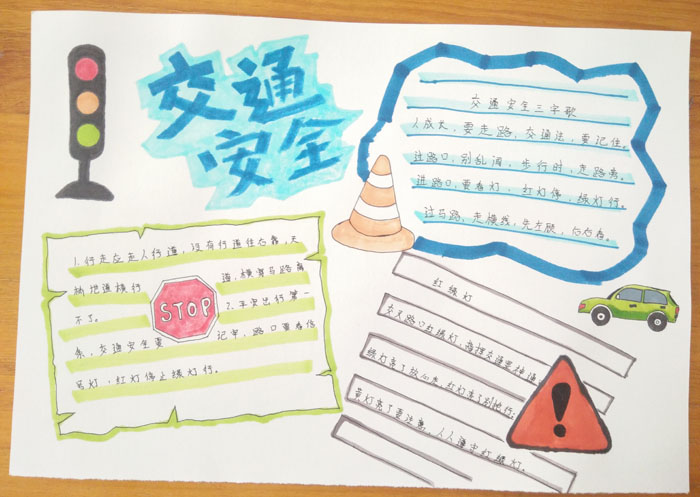 交通
安全
交通安全三字歌
人成长，要走路，交通法，要记住。
过路口，别乱闯，步行时，走路离。
进路口，要看灯，红灯停，绿灯行。
过马路，走横线，先左顾，后右看。
1.行走应走人行道，没有行道往右靠，天
桥地道横行
道，横穿马路离
不了。
STOP
2.平安出行第一
条，交通安全要
记牢，路口要看信
号灯，红灯停止绿灯行。
红绿灯
交叉路口红绿灯，指挥交通显神通
绿灯亮了放心走，红灯亮了别抢行；
黄灯亮了要注意，人人遵守红绿灯。
!